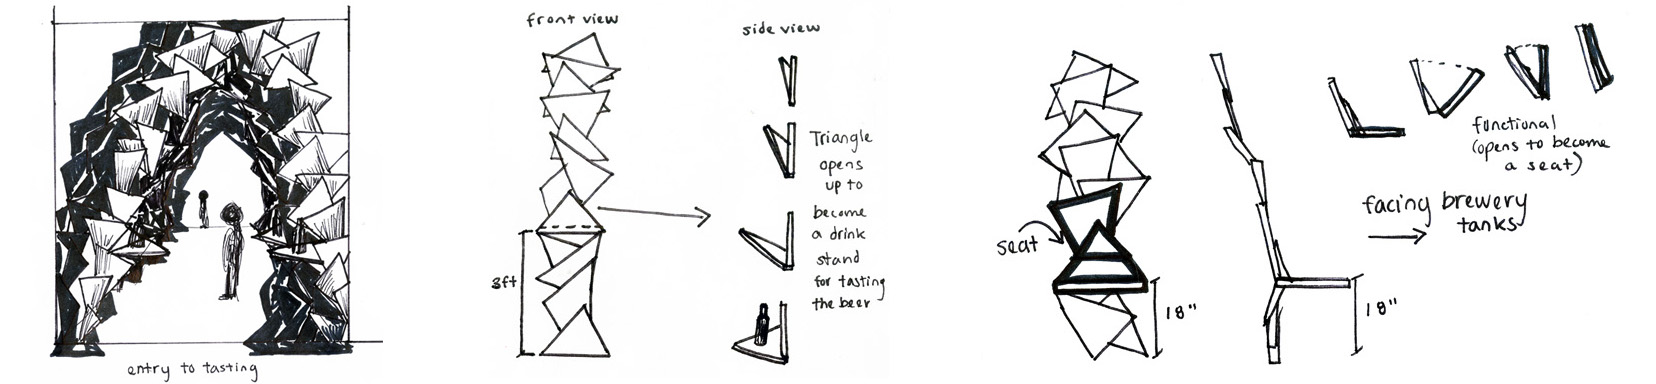 entry to tasting
front view
3ft
side view
Triangle
opens
up to
become
a drink
stand
for tasting
the beer
seat
18"
18"
functional
(opens to become
a seat)
facing brewery
tanks